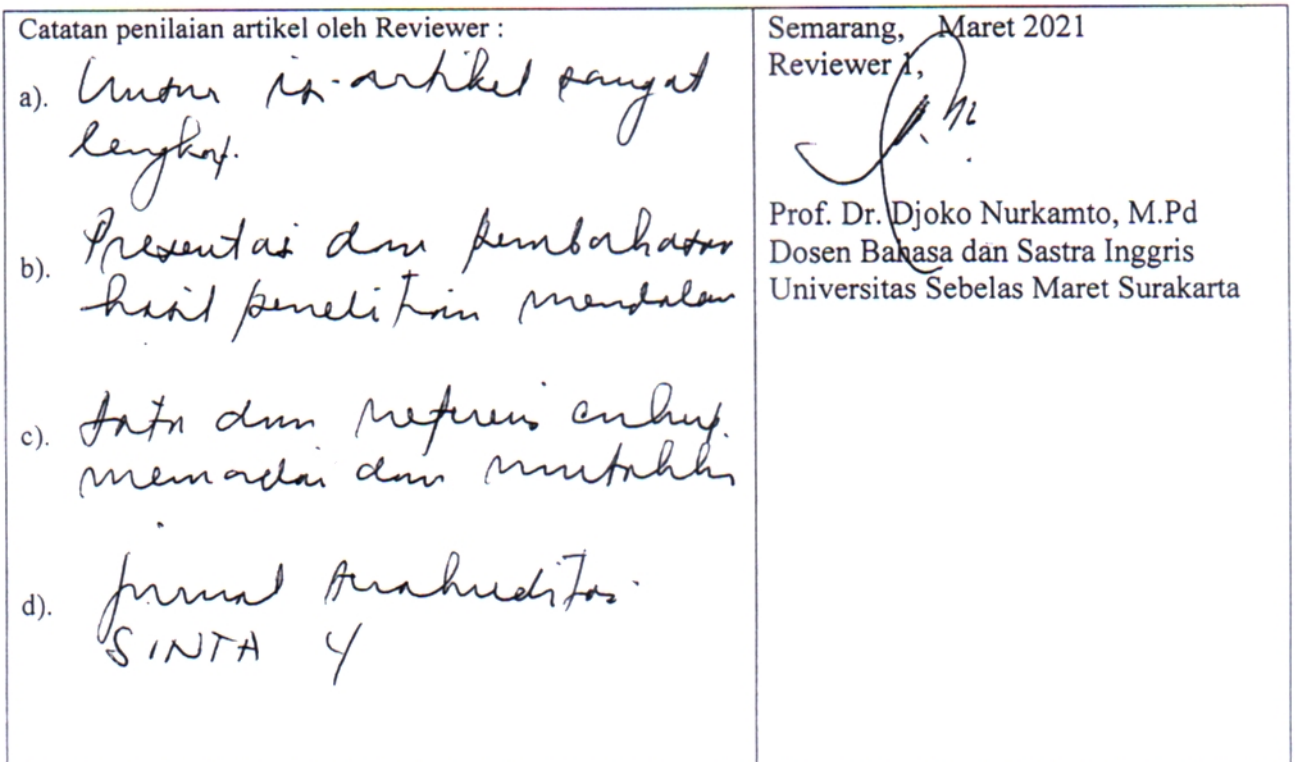 Catatan penilaian artikel oleh Reviewer :
a). Unsur isi artikel sangat
lengkap.
b). Presentasi dan pembahasan
hasil penelitian mendalam
c). Data dan referensi cukup
memadai dan mutakhir
d). Jurnal terakreditasi
SINTA 4
Semarang, Maret 2021
Reviewer 1,
Prof. Dr. Djoko Nurkamto, M.Pd
Dosen Bahasa dan Sastra Inggris
Universitas Sebelas Maret Surakarta